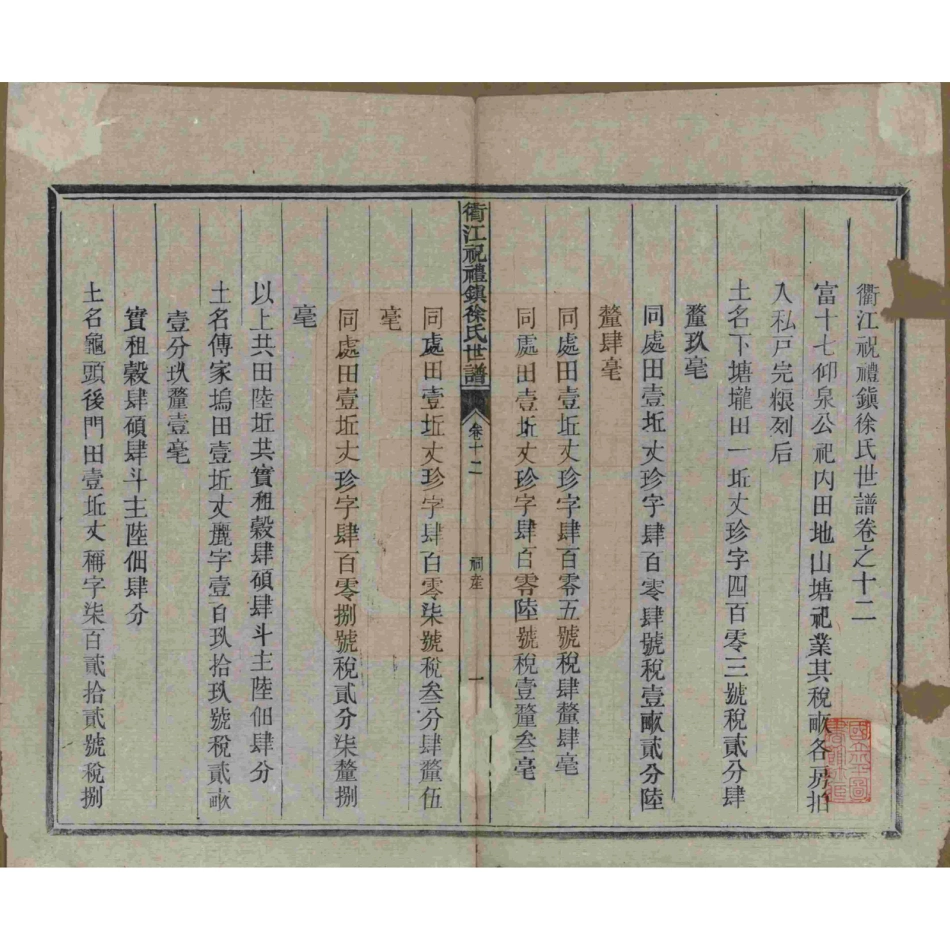 衢江祝禮鎭徐氏世譜卷之十二
富十七仰泉公祀內田地山塘祀業其稅畝各房拍
入私戸完粮列后
土名下塘壠田一坵丈珍字四百零三號稅貳分肆
釐玖毫
同處田壹坵丈珍字肆百零肆號稅壹畝貳分陸
釐肆毫
同處田壹坵丈珍字肆百零五號稅肆釐肆毫
同處田壹坵丈珍字肆百零陸號稅壹釐叁毫
衢江祝禮鎭徐氏世譜
卷十二
祠産
一
同處田壹坵丈珍字肆百零柒號稅叁分肆釐伍
毫
同處田壹坵丈珍字肆百零捌號稅貳分柒釐捌
毫
以上共田陸坵共實租穀肆碩肆斗主陸佃肆分
土名傳家塢田壹坵丈麗字壹百玖拾玖號稅貳畝
壹分玖釐壹毫
實租穀肆碩肆斗主陸佃肆分
土名龜頭後門田壹坵丈稱字柒百貳拾貳號稅捌